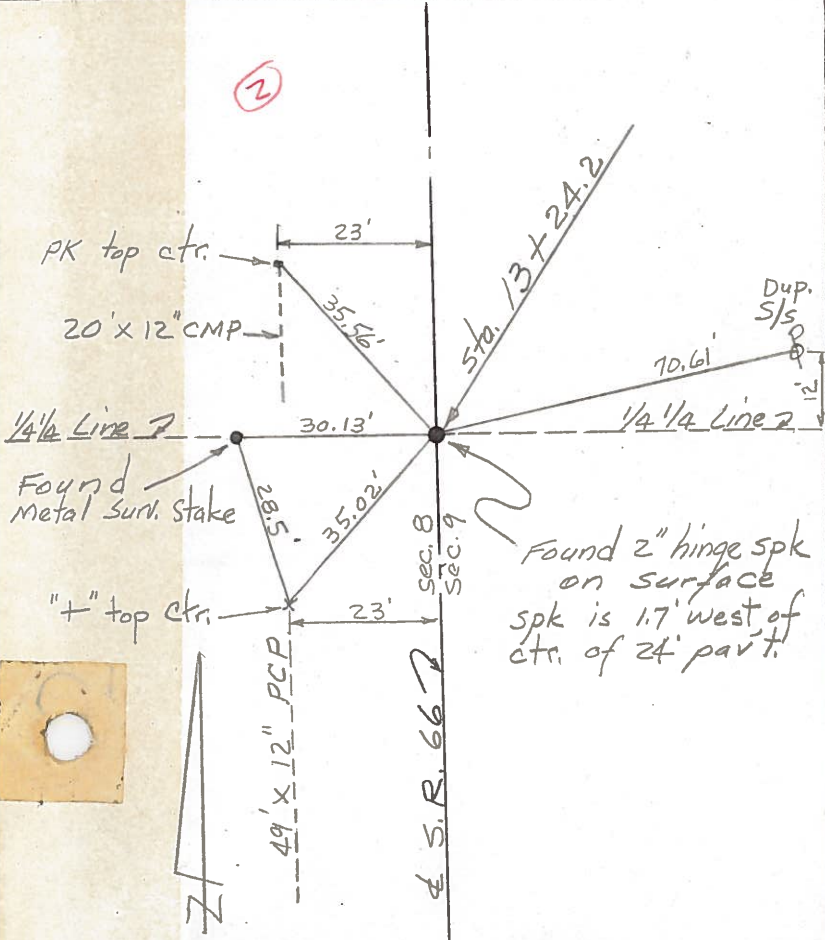 2
23'
Sta. 13 + 24.2
PK top ctr.
35.56'
Dup.
S/S
20' x 12" CMP
70.61'
12'
1/4 1/4 Line
30.13'
1/4 1/4 Line
Found
Metal Surv. Stake
28.5'
35.02'
Sec. 8
Sec. 9
Found 2" hinge spk
on surface
spk is 1.7' west of
ctr. of 24' pav't.
"+" top Ctr.
23'
49' x 12" PCP
℄ S.R. 66